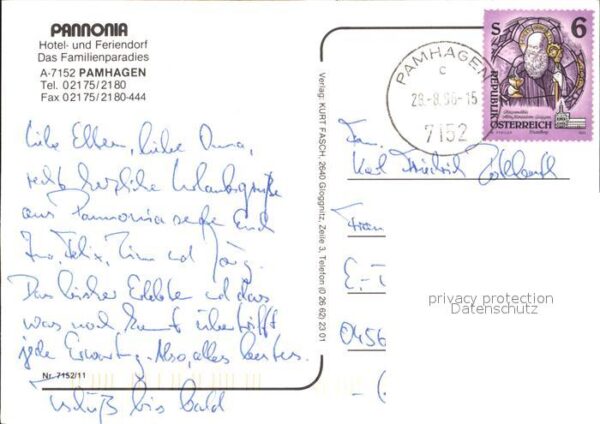 PANNONIA
Hotel- und Feriendorf
Das Familienparadies
A-7152 PAMHAGEN
Tel. 02175/2180
Fax 02175/2180-444
Liebe Eltern, liebe Oma,
recht herzliche Urlaubsgrüße
aus Pannonia senden Euch
Felix, Timo und Jörg.
Das bisher Erlebte und das
was noch kommt übertrifft
jede Erwartung. Also, alles bestens.
Tschüß bis bald
Nr. 7152/11
Verlag: KURT FASCH, 2640 Gloggnitz, Zeile 3, Telefon (0 26 62) 23 01
PAMHAGEN
c
7152
S 6
REPUBLIK
ÖSTERREICH
Fam.
Karl Friedrich
E.-T
0456
privacy protection
Datenschutz